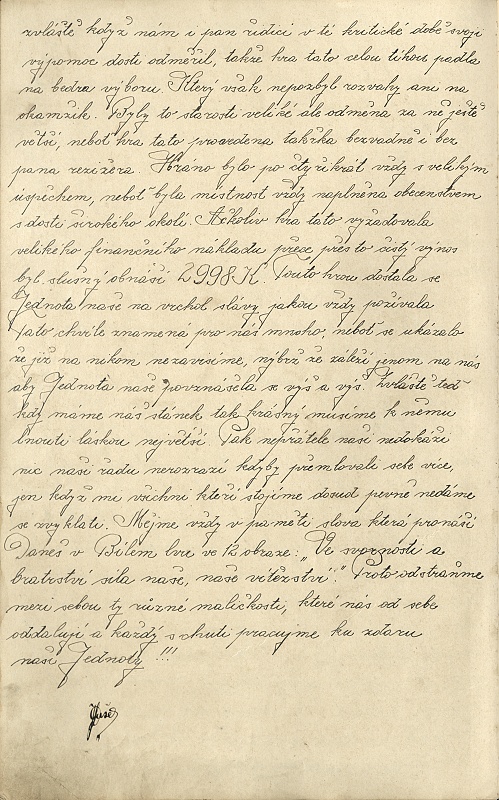 zvláště když nám i pan řídící v té kritické době svoji
výpomoc dosti odměřil, takže hra tato celou tíhou padla
na bedra výboru. Který však nepozbyl rozvahy ani na
okamžik. Byly to starosti veliké ale odměna za ně ještě
větší, neboť hra tato provedena takřka bezvadně i bez
pana režiséra. Hráno bylo po čtyřikrát vždy s velikým
úspěchem, neboť byla místnost vždy naplněna obecenstvem
s dosti širokého okolí. Ačkoliv hra tato vyžadovala
velikého finančního nákladu přece přes to čistý výnos
byl slušný obnáší 2998 K. Touto hrou dostala se
Jednota naše na vrchol slávy jakou vždy požívala
Tato chvíle znamená pro nás mnoho, neboť se ukázalo
že již na nikom nezávisíme, nýbrž že záleží jenom na nás
aby Jednota naše povznášela se výš a výš. Zvláště teď
kdy máme náš stánek tak krásný musíme k němu
lnouti láskou největší. Pak nepřátelé naši nedokáží
nic naší řadu nerozrazí kdyby přemlovali sebe více,
jen když mi všichni kteří stojíme dosud pevně nedáme
se zvyklati. Mějme vždy v paměti slova která pronáší
Daneš v Bílem lvu ve 12 obraze: „Ve svornosti a
bratrství síla naše, naše vítězství." Proto odstraňme
mezi sebou ty různé maličkosti, které nás od sebe
oddalují a každý s chutí pracujme ku zdaru
naší Jednoty!!!